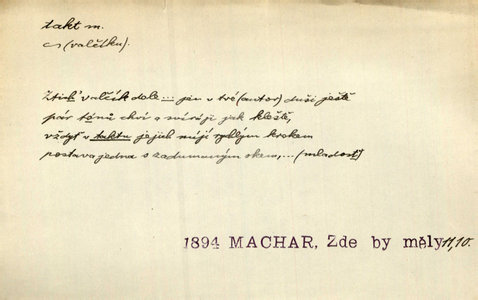 takt m.
(valčíku).
Ztich' valčík dole ... jen v tvé (autor) duši ještě
pár tónů chví a svírají jak kleště,
vždyť v taktu jejich míjí rychlým krokem
postava jedna s zadumaným okem, ... (mladost)
1894 MACHAR, Zde by měly 11, 10.